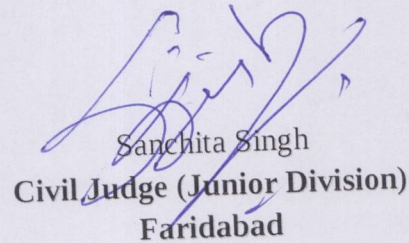 Sanchita Singh
Civil Judge (Junior Division)
Faridabad